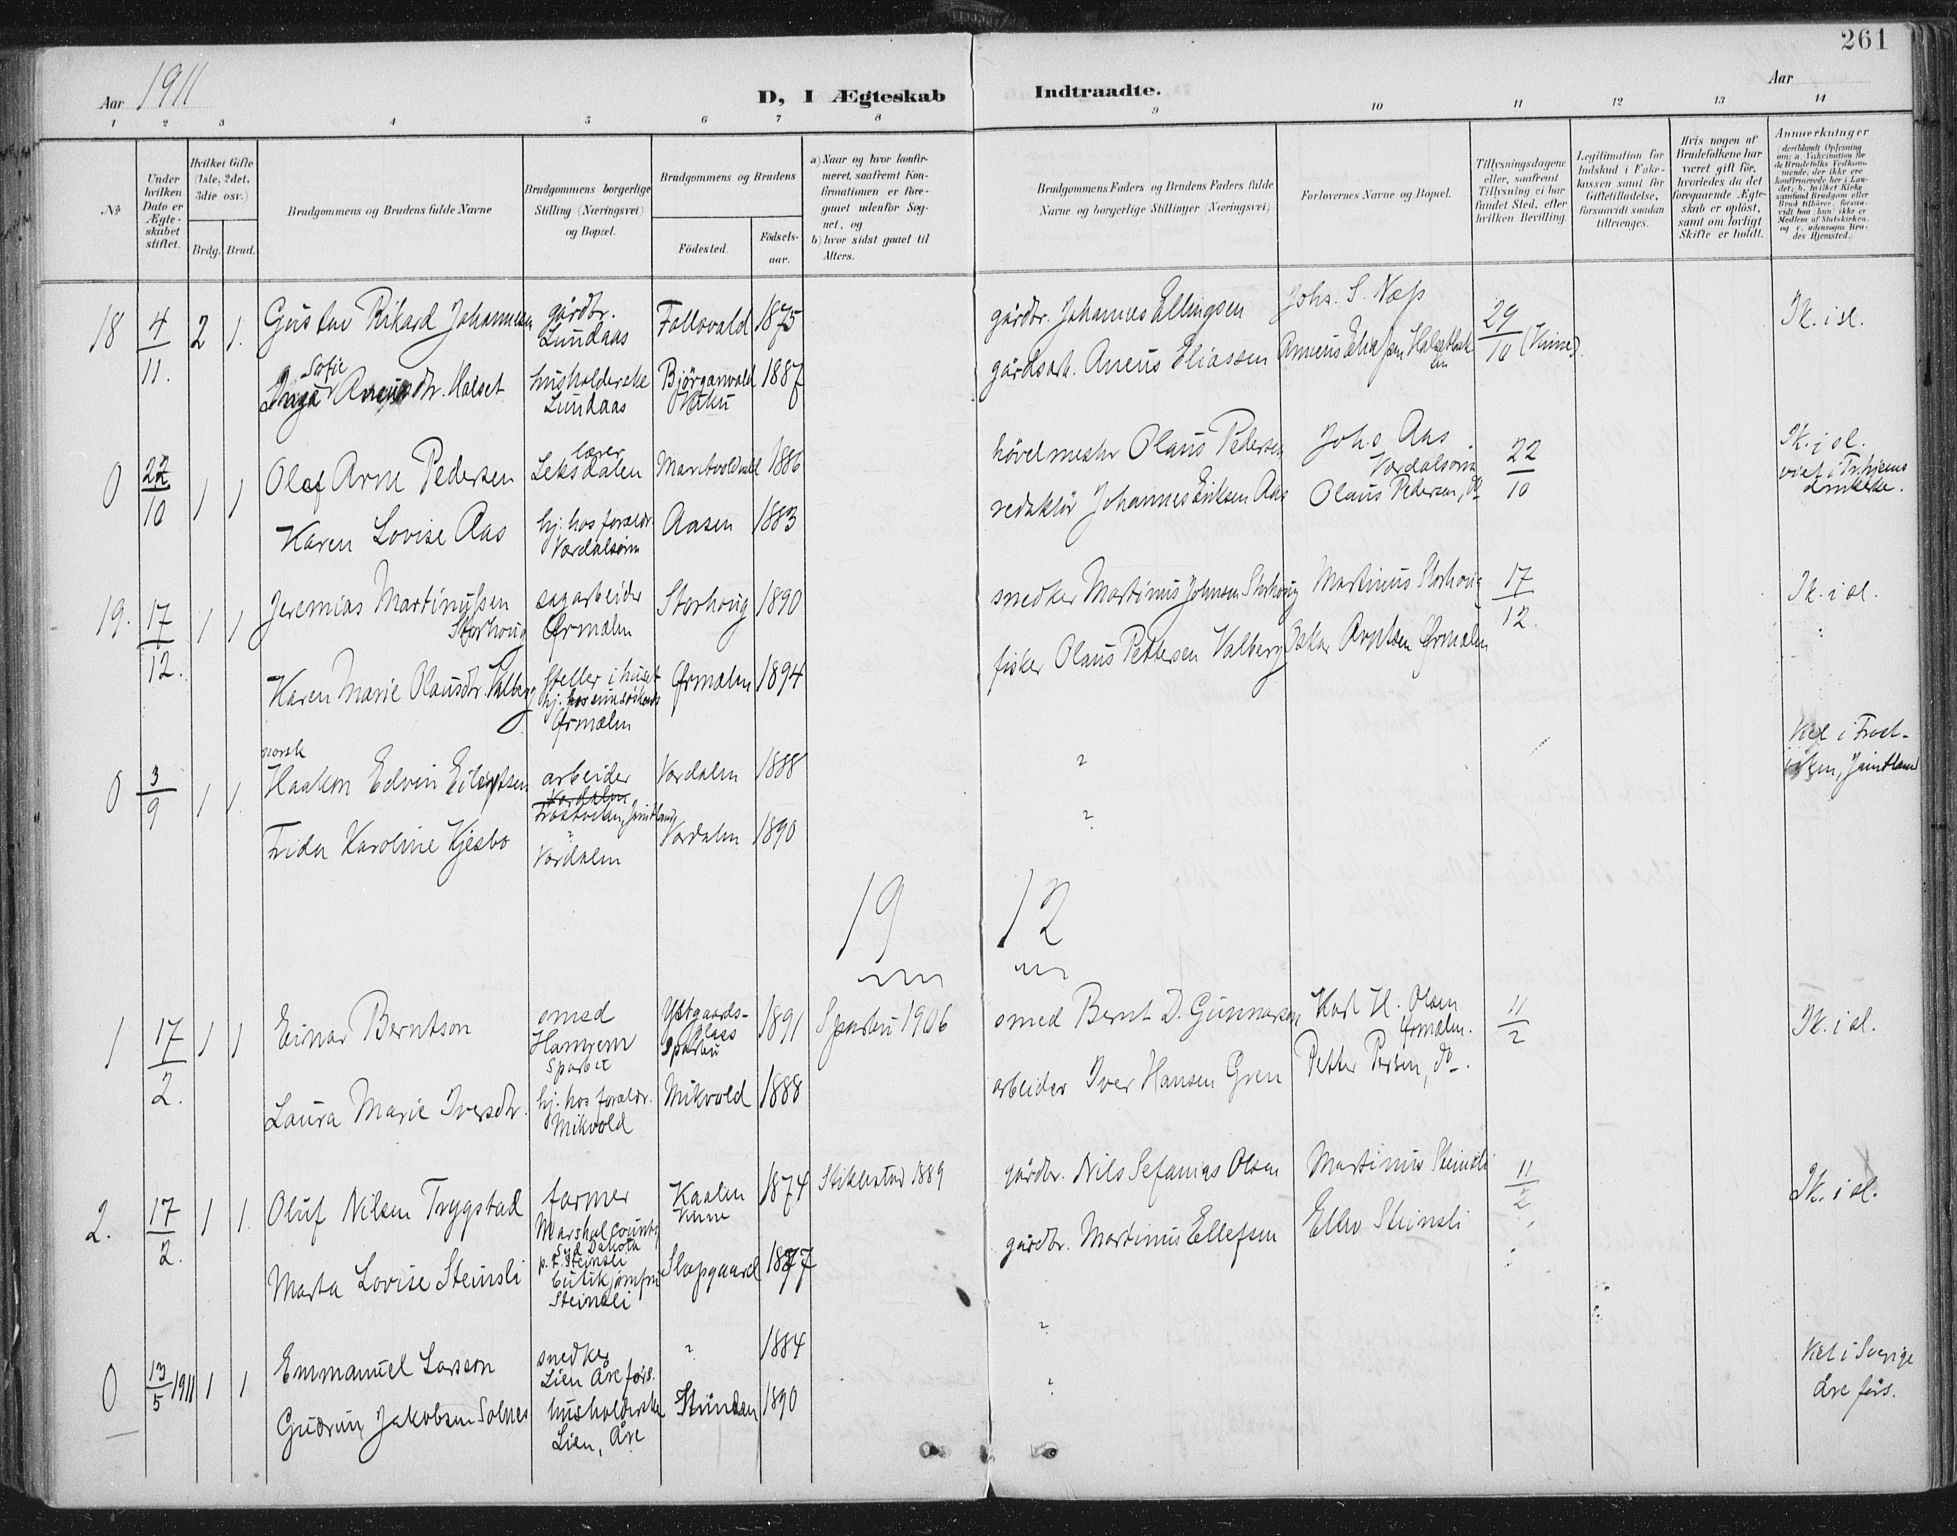 261
Aar 1911
D, I Ægteskab Indtraadte.
Aar
1 2 3 4 5 6 7 8 9 10 11 12 13 14
No.
Under hvilken Dato er Ægteskabet stiftet.
Hvilket Gifte (1ste, 2det, 3die osv.)
Brdg. Brud.
Brudgommens og Brudens fulde Navne
Brudgommens borgerlige Stilling (Næringsvei) og Bopæl.
Brudgommens og Brudens
Fødested.
Fødselsaar.
a) Naar og hvor konfirmeret, saafremt Konfirmationen er foregaaet udenfor Sognet, og
b) hvor sidst gaaet til Alters.
Brudgommens Faders og Brudens Faders fulde Navne og borgerlige Stillinger (Næringsvei)
Forlovernes Navne og Bopæl.
Tillysningsdagene eller, saafremt Tillysning ei har fundet Sted, efter hvilken Bevilling.
Legitimation for Indskud i Enkekassen samt for Giftetilladelse, forsaavidt saadan tiltrænges.
Hvis nogen af Brudefolkene har været gift før, hvorledes da det foregaaende Ægteskab er opløst, samt om lovligt Skifte er holdt.
Anmærkninger
18 4/11. 2 1. Gustav Rikard Johannesen gårdbr. Lundaas Follovald 1875 gårdbr. Johannes Ellingsen Johs. S. Næss 29/10 (Vinne). Ik. i sl.
Inga Sofie Aneusdtr. Halset husholderske Lundaas Björganvald 1887 gårdsarb. Aneus Eliassen
0 22/10 1 1 Olaf Arne Pedersen lærer Leksdalen 1886 hövelmester Olaus Pedersen Johs Aas Værdalsörn 22/10 Ik. i sl.
Karen Lovise Aas hj. hos forældr. Værdalsörn Aasen 1883 redaktör Johannes Eriksen Aas Olaus Pedersen, do
19. 17/12. 1 1 Jeremias Martinussen Storhoug sagarbeider Örmælen Storhoug 1890 snedker Martinus Johnsen Storhoug Martinus Storhoug 17/12. Ik. i sl.
Karen Marie Olausdtr. Valberg steller i huset Örmælen Örmælen 1894 fisker Olaus Pettersen Valberg Oskar Arntsen Örmælen
norsk
0 3/9 1 1. Haakon Edvin Eilertsen arbeider Værdalen Frostviken, Jämtland Værdalen 1888 ? Viet i Frostviken, Jämtland
Frida Karoline Kjesbo ? Værdalen Værdalen 1890 ?
19 12
1 17/2. 1 1 Einar Berntson smed Hamrem Sparbu Ystgaardsplass Sparbu 1891 Sparbu 1906 smed Bernt D. Gunnarson Karl H. Olsen Örmælen. 11/2 Ik. i sl.
Laura Marie Iversdtr. hj. hos forældr. Mikvold Mikvold 1888 arbeider Iver Hansen Gren Petter Persen, do.
2. 17/2. 1 1. Oluf Nilsen Trygstad farmer Marshal county Syd Dakota p. t. Steinsli Kaalen Vinne 1874 Stiklestad 1889 gårdbr. Nils Sefanias Olsen Martinus Steinsli 11/2 Ik. i sl.
Marta Lovise Steinsli butikjomfru Steinsli Slapgaard 1877 gårdbr. Martinus Ellefsen Steinsli
0 13/5 1911 1 1 Emmanuel Larsson snedker Lien Åre förs. ? 1884 ? Viet i Sverige Åre förs.
Gudrun Jakobsen Solnes husholderske Lien, Åre 1890 ?